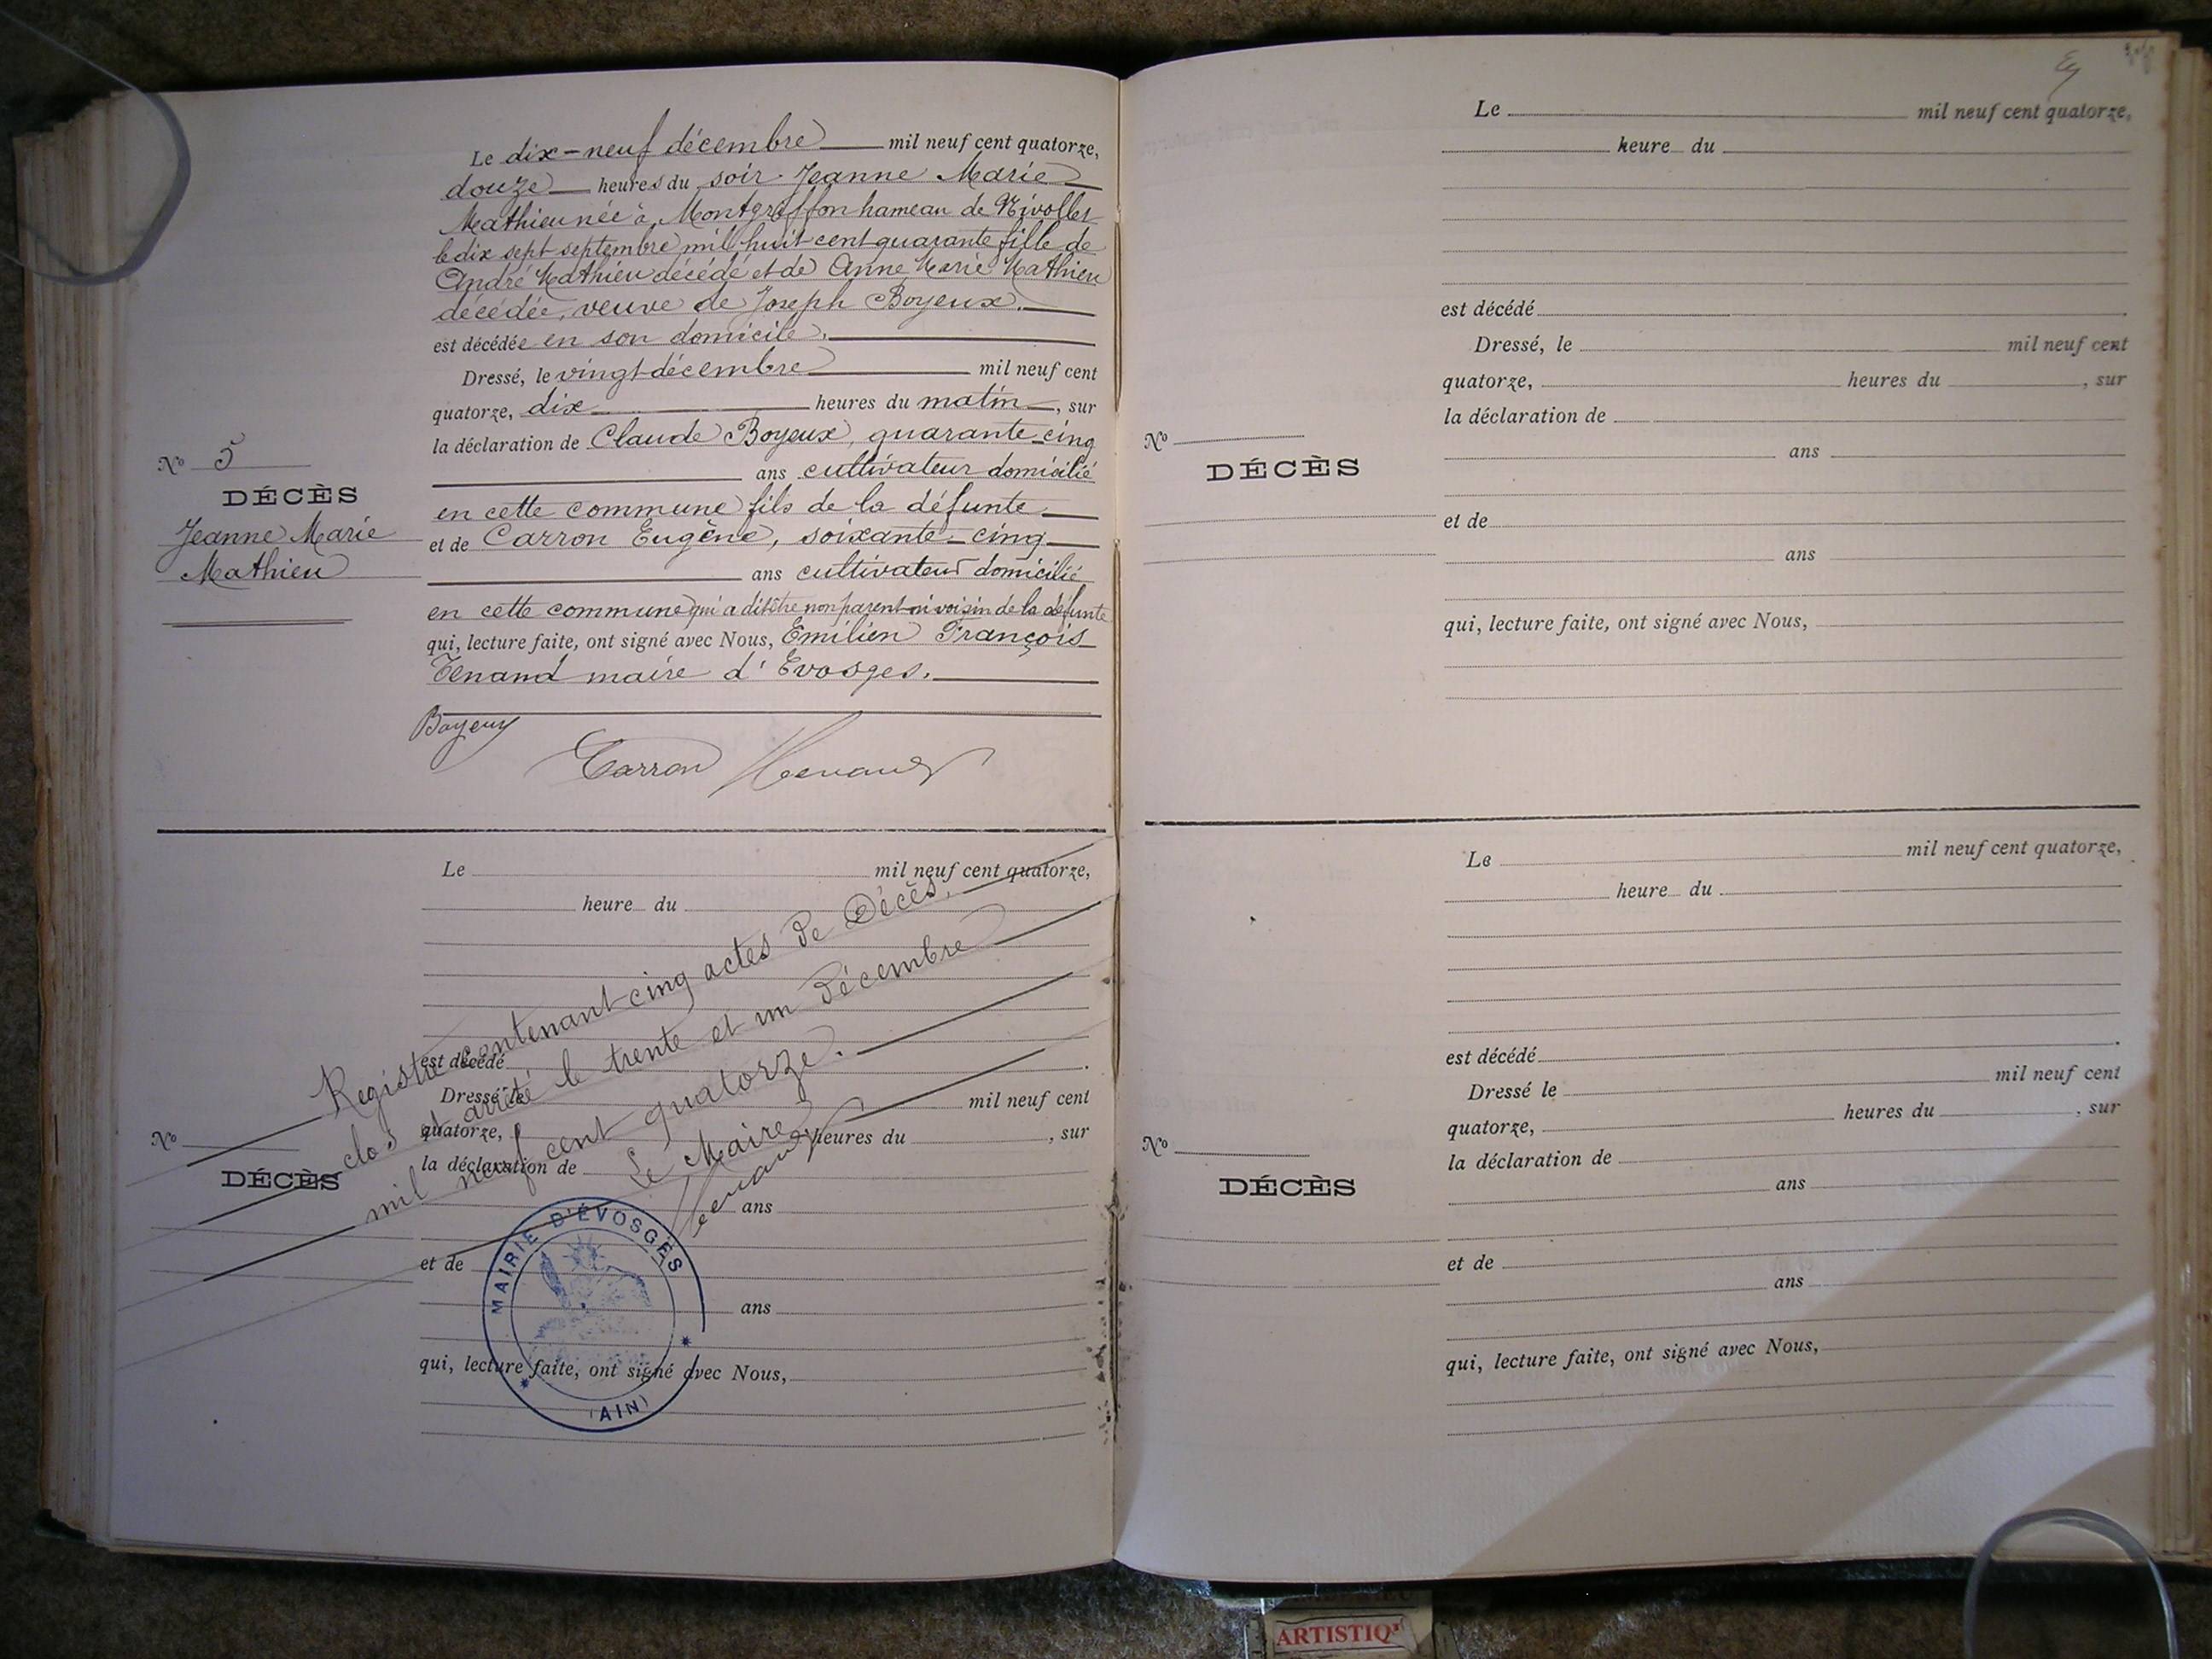 Le dix-neuf décembre mil neuf cent quatorze,
douze heures du soir. Jeanne Marie
Mathieu née à Montgriffon hameau de Nivollet
le dix sept septembre mil huit cent quarante fille de
André Mathieu décédé et de Anne Marie Mathieu
décédée, veuve de Joseph Boyeux.
est décédée en son domicile.
Dressé, le vingt décembre mil neuf cent
quatorze, dix heures du matin, sur
la déclaration de Claude Boyeux, quarante-cinq
ans cultivateur domicilié
en cette commune fils de la défunte
et de Carron Eugène, soixante-cinq
ans cultivateur domicilié
en cette commune qui a dit être non parent ni voisin de la défunte
qui, lecture faite, ont signé avec Nous, Emilien François
Tenand maire d'Evosges.
Boyeux
Carron Tenand
No 5
DÉCÈS
Jeanne Marie
Mathieu
Le mil neuf cent quatorze,
heure du
est décédé
Dressé, le mil neuf cent
quatorze, heures du , sur
la déclaration de
ans
et de
ans
qui, lecture faite, ont signé avec Nous,
No
DÉCÈS
Registre contenant cinq actes de Décès.
clos et arrêté le trente et un Décembre
mil neuf cent quatorze.
Le Maire
Tenand
MAIRIE D'ÉVOSGES
(AIN)
Le mil neuf cent quatorze,
heure du
est décédé
Dressé, le mil neuf cent
quatorze, heures du , sur
la déclaration de
ans
et de
ans
qui, lecture faite, ont signé avec Nous,
No
DÉCÈS
Le mil neuf cent quatorze,
heure du
est décédé
Dressé le mil neuf cent
quatorze, heures du , sur
la déclaration de
ans
et de
ans
qui, lecture faite, ont signé avec Nous,
No
DÉCÈS
ARTISTIQ